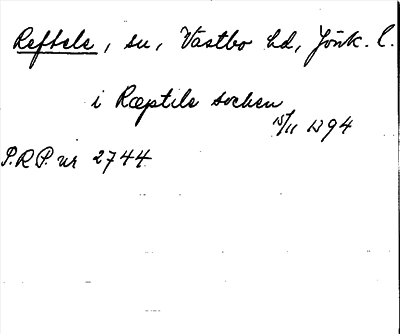 Reftele, sn, Västbo hd, Jönk. l.
i Ræptile sochen
15/11 1394
P.R.P. nr 2744